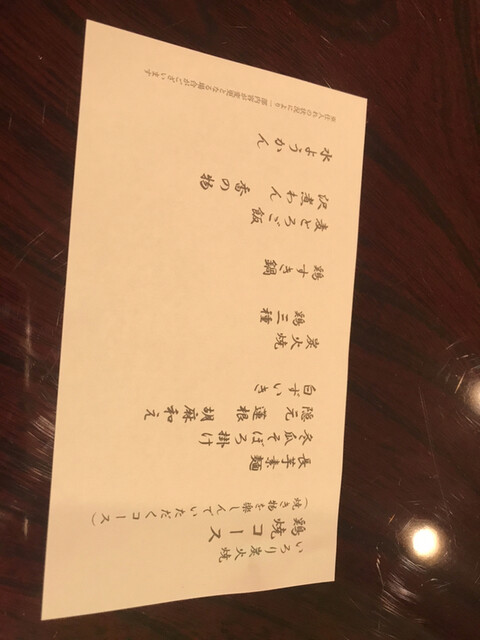 いろり炭火焼
鶏焼コース
(焼き物を楽しんでいただくコース)
長芋素麺
冬瓜そぼろ掛け
隠元蓮根胡麻和え
白ずいき
炭火焼
鶏三種
鶏すき鍋
麦とろご飯
沢煮わん 香の物
水ようかん
※仕入れの状況により一部内容が変更となる場合がございます